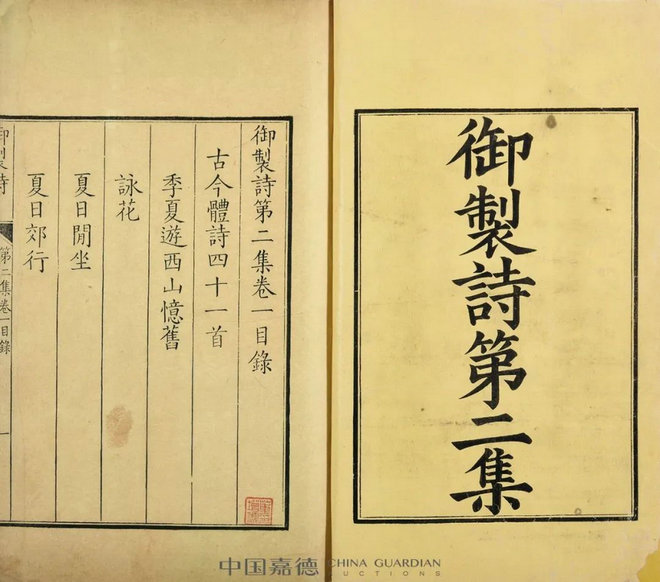 御製詩第二集
御製詩第二集卷一目錄
古今體詩四十一首
季夏遊西山憶舊
詠花
夏日閒坐
夏日郊行
御製詩
第二集卷一目錄
一
中国嘉德 CHINA GUARDIAN
AUCTIONS